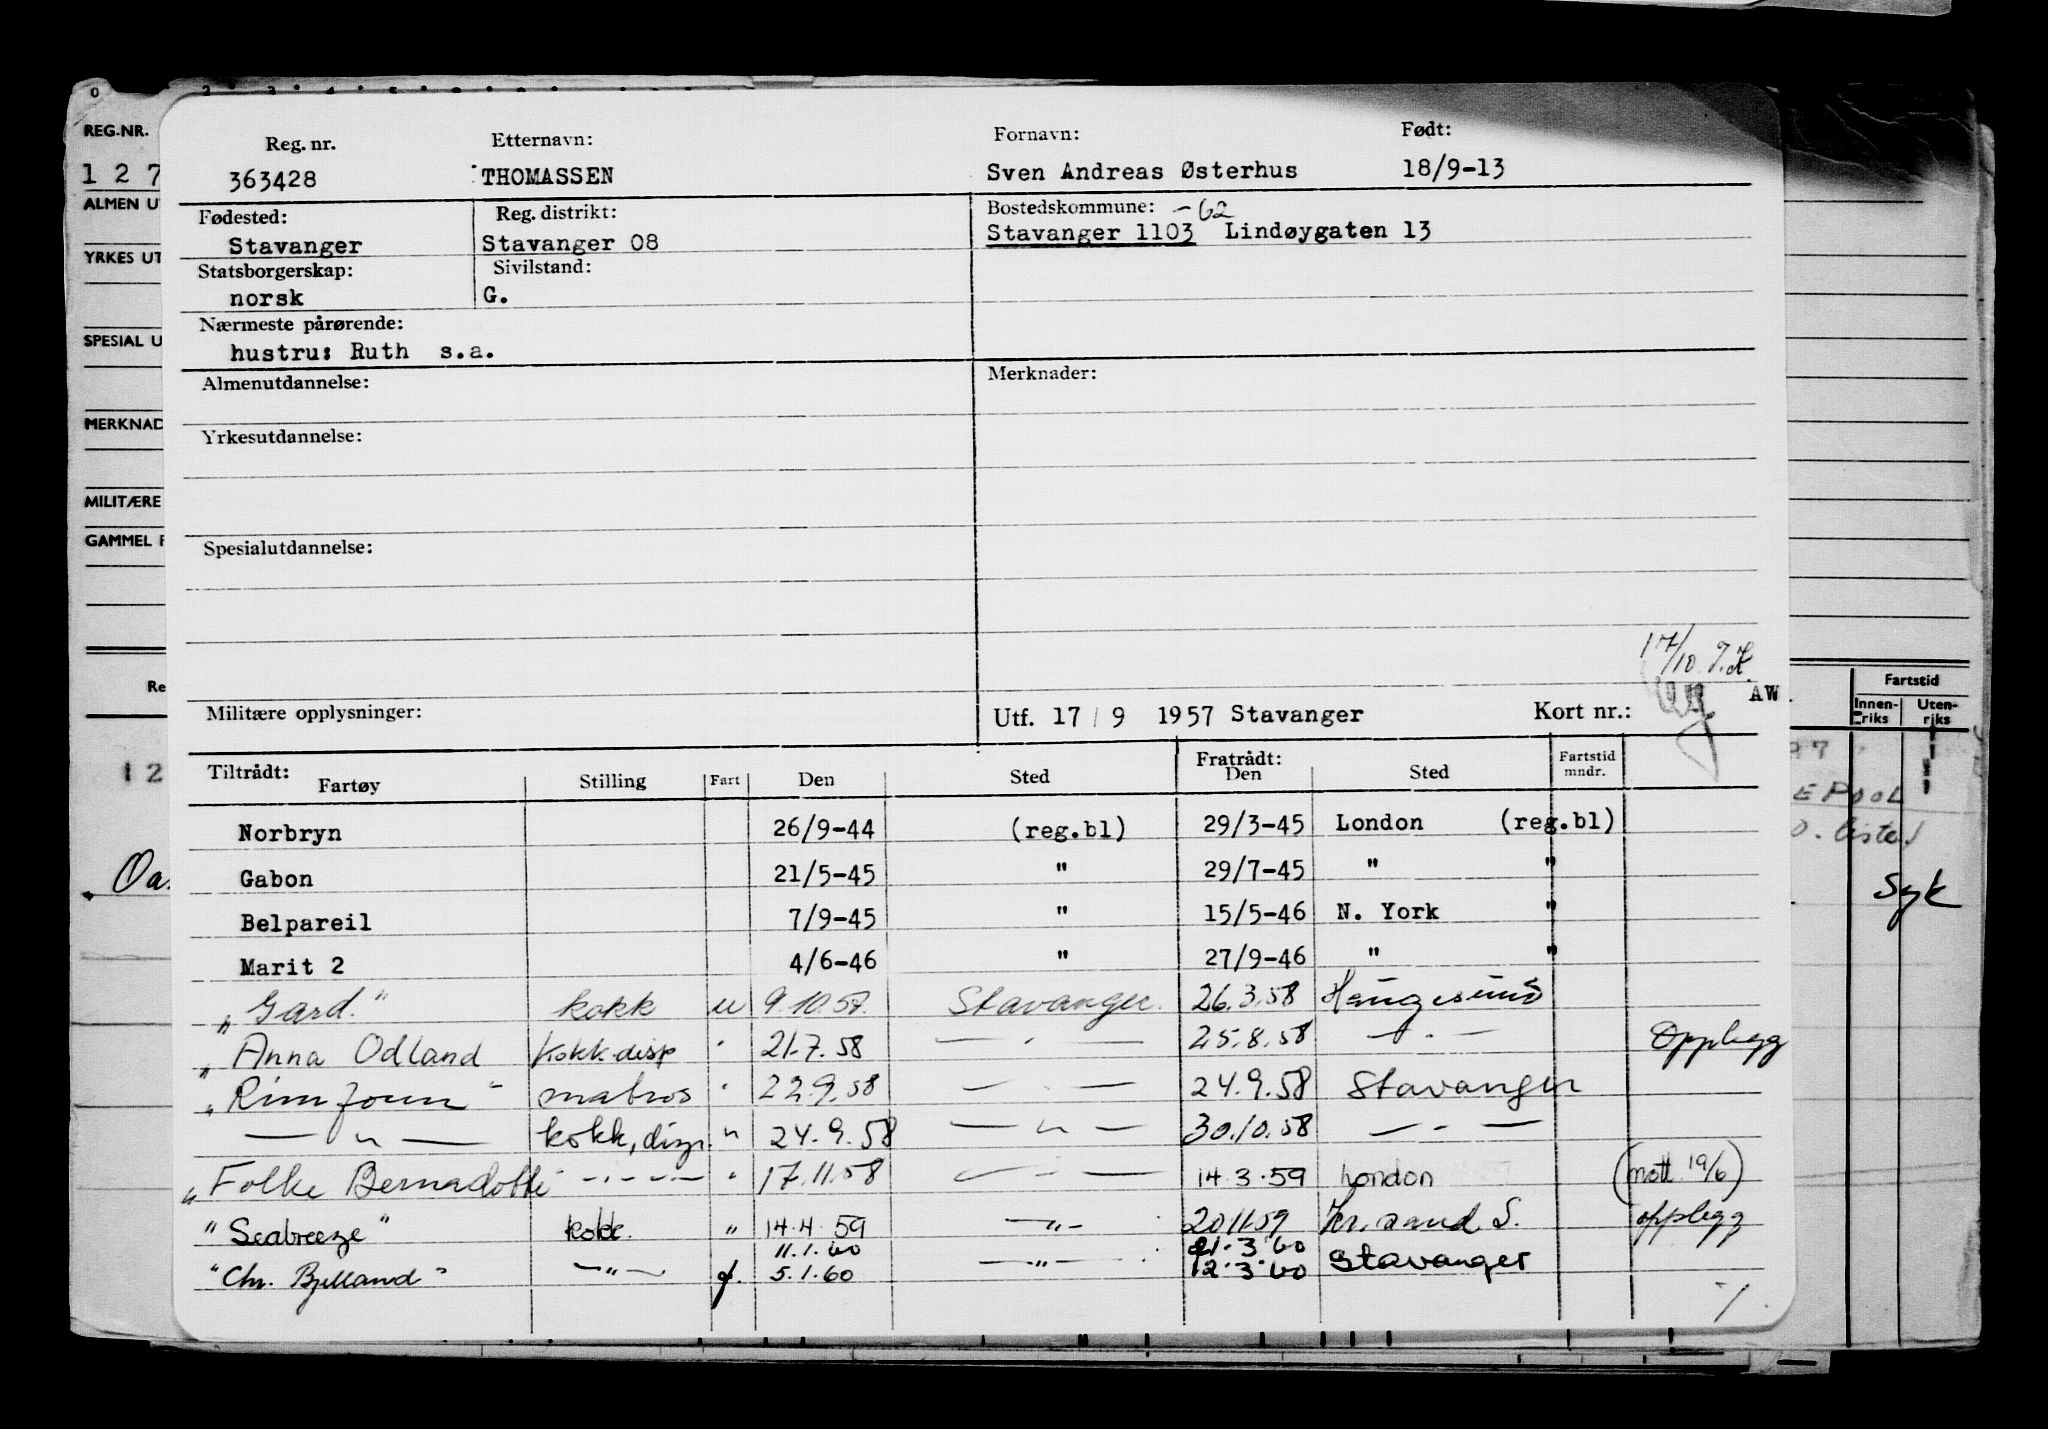 REG.NR.
Reg. nr. Etternavn: Fornavn: Født:
1 2 7
363428 THOMASSEN Sven Andreas Østerhus 18/9-13
ALMEN U
Fødested: Reg. distrikt: Bostedskommune: -62
Stavanger Stavanger 08 Stavanger 1103 Lindøygaten 13
YRKES UT
Statsborgerskap: Sivilstand:
norsk G.
Nærmeste pårørende:
SPESIAL U
hustru: Ruth s.a.
Almenutdannelse: Merknader:
MERKNAD
Yrkesutdannelse:
MILITÆRE
GAMMEL F
Spesialutdannelse:
17/10 J.K.
Re Fartstid
Militære opplysninger: Utf. 17/9 1957 Stavanger Kort nr.: AW.
Innen-riks Uten-riks
Tiltrådt: Fratrådt:
Fartøy Stilling Fart Den Sted Den Sted Fartstid mndr.
1 2
E POOL
Norbryn 26/9-44 (reg.bl) 29/3-45 London (reg.bl)
O. liste
Gabon 21/5-45 " 29/7-45 " "
Oa.
Syk
Belpareil 7/9-45 " 15/5-46 N. York "
Marit 2 4/6-46 " 27/9-46 " "
"Gard." kokk u 9.10.57. Stavanger. 26.3.58 Haugesund
"Anna Odland kokk.disp " 21.7.58 — " — 25.8.58 — " — Opplegg
"Rimfonn" matros " 22.9.58 — " — 24.9.58 Stavanger
— " — kokk, " 24.9.58 — " — 30.10.58 — " —
"Folke Bernadotte — " — " 17.11.58 — " — 14.3.59 London (mott 19/6)
"Seabreeze" kokk. " 14.4.59 — " — 20.11.59 Kr.sand S. opplegg
11.1.60 21.3.60
"Chr. Bjelland" — " — 5.1.60 — " — 12.3.60 Stavanger